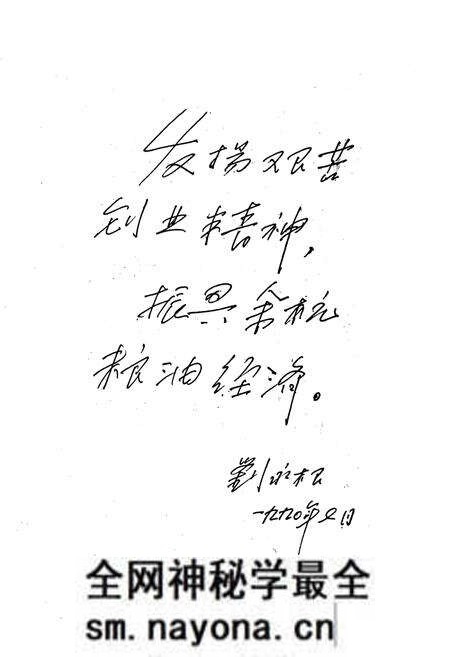 发扬艰苦
创业精神，
振兴余杭
粮油经济。
劉永根
一九九〇年 月
全网神秘学最全
sm.nayona.cn